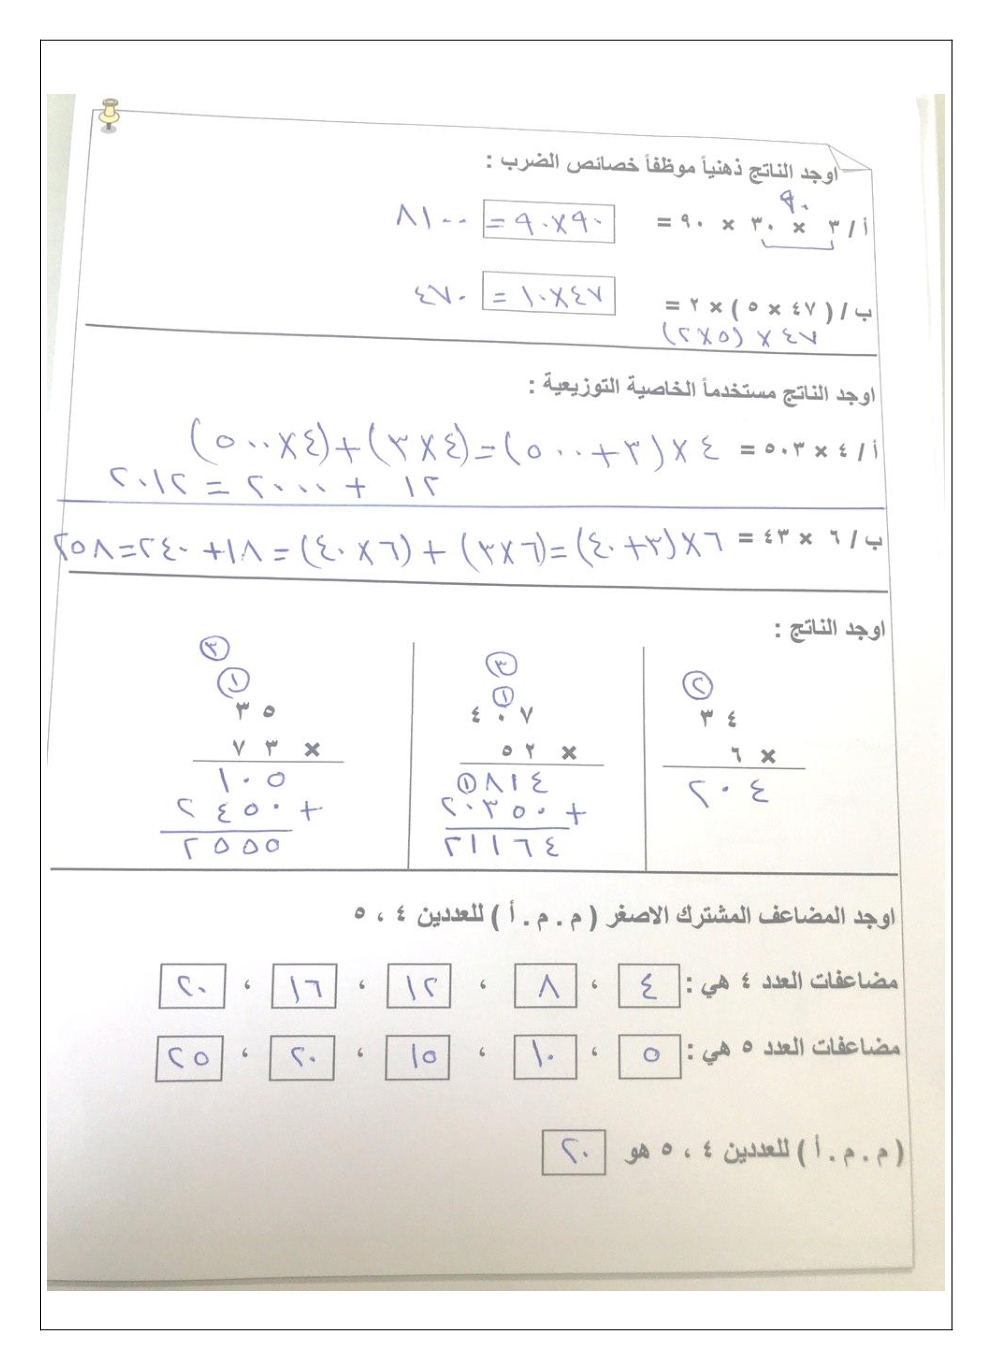 اوجد الناتج ذهنياً موظفاً خصائص الضرب :
٩٠
أ / ٣ × ٣٠ × ٩٠ = ٩٠×٩٠ = ٨١٠٠
ب / ( ٤٧ × ٥ ) × ٢ = ٤٧×١٠ = ٤٧٠
٤٧ × (٥×٢)
اوجد الناتج مستخدماً الخاصية التوزيعية :
أ / ٤ × ٥٠٣ = ٤ × (٣+٥٠٠) = (٤×٣)+(٤×٥٠٠)
١٢ + ٢٠٠٠ = ٢٠١٢
ب / ٦ × ٤٣ = ٦×(٣+٤٠) = (٦×٣) + (٦×٤٠) = ١٨+ ٢٤٠=٢٥٨
اوجد الناتج :
٢
٣٤
٦ ×
٢٠٤
٣
١
٤٠٧
٥٢ ×
١
٠٨١٤
٢٠٣٥٠ +
٢١١٦٤
٣
١
٣٥
٧٣ ×
١٠٥
٢٤٥٠ +
٢٥٥٥
اوجد المضاعف المشترك الاصغر ( م . م . أ ) للعددين ٤ ، ٥
مضاعفات العدد ٤ هي : ٤ ، ٨ ، ١٢ ، ١٦ ، ٢٠
مضاعفات العدد ٥ هي : ٥ ، ١٠ ، ١٥ ، ٢٠ ، ٢٥
( م . م . أ ) للعددين ٤ ، ٥ هو ٢٠